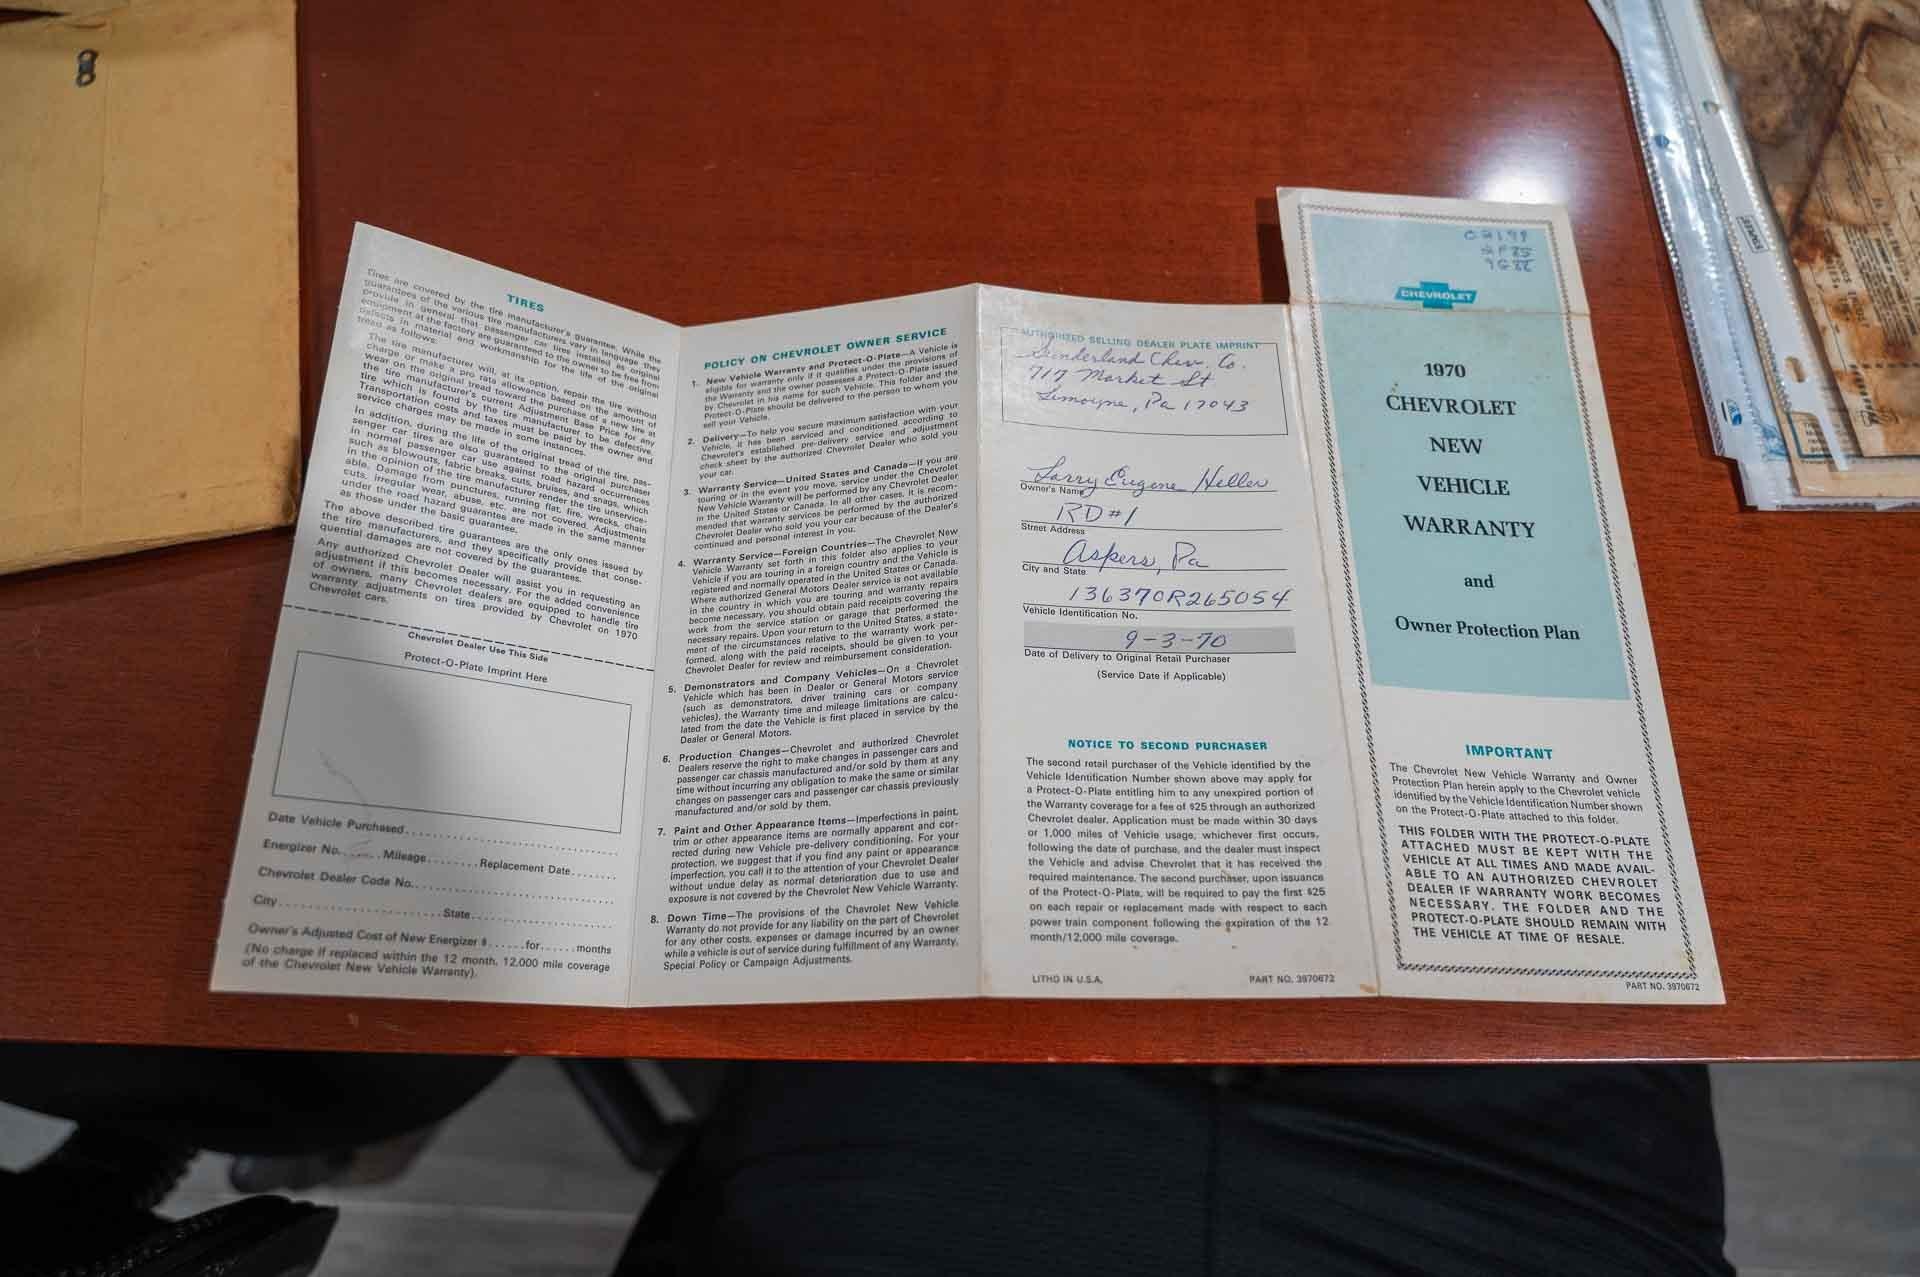 TIRES
Tires are covered by the tire manufacturer's guarantee. While the
guarantees of the various tire manufacturers vary in language they
provide in general that passenger car tires installed as original
equipment at the factory are guaranteed to the owner to be free from
defects in material and workmanship for the life of the original
tread as follows:
The tire manufacturer will, at its option, repair the tire without
charge or make a pro rata allowance based on the amount of
wear on the original tread toward the purchase of a new tire at
the tire manufacturer's current Adjustment Base Price for any
tire which is found by the tire manufacturer to be defective.
Transportation costs and taxes must be paid by the owner and
service charges may be made in some instances.
In addition, during the life of the original tread of the tire, pas-
senger car tires are also guaranteed to the original purchaser
in normal passenger car use against road hazard occurrences
such as blowouts, fabric breaks, cuts, bruises, and snags, which
in the opinion of the tire manufacturer render the tire unservice-
able. Damage from punctures, running flat, fire, wrecks, chain
cuts, irregular wear, abuse, etc. are not covered. Adjustments
under the road hazard guarantee are made in the same manner
as those under the basic guarantee.
The above described tire guarantees are the only ones issued by
the tire manufacturers, and they specifically provide that conse-
quential damages are not covered by the guarantees.
Any authorized Chevrolet Dealer will assist you in requesting an
adjustment if this becomes necessary. For the added convenience
of owners, many Chevrolet dealers are equipped to handle tire
warranty adjustments on tires provided by Chevrolet on 1970
Chevrolet cars.
Chevrolet Dealer Use This Side
Protect-O-Plate Imprint Here
Date Vehicle Purchased
Energizer No. Mileage Replacement Date
Chevrolet Dealer Code No.
City State
Owner's Adjusted Cost of New Energizer $ for months
(No charge if replaced within the 12 month, 12,000 mile coverage
of the Chevrolet New Vehicle Warranty).
POLICY ON CHEVROLET OWNER SERVICE
1. New Vehicle Warranty and Protect-O-Plate—A Vehicle is
eligible for warranty only if it qualifies under the provisions of
the Warranty and the owner possesses a Protect-O-Plate issued
by Chevrolet in his name for such Vehicle. This folder and the
Protect-O-Plate should be delivered to the person to whom you
sell your Vehicle.
2. Delivery—To help you secure maximum satisfaction with your
Vehicle, it has been serviced and conditioned according to
Chevrolet's established pre-delivery service and adjustment
check sheet by the authorized Chevrolet Dealer who sold you
your car.
3. Warranty Service—United States and Canada—If you are
touring or in the event you move, service under the Chevrolet
New Vehicle Warranty will be performed by any Chevrolet Dealer
in the United States or Canada. In all other cases, it is recom-
mended that warranty services be performed by the authorized
Chevrolet Dealer who sold you your car because of the Dealer's
continued and personal interest in you.
4. Warranty Service—Foreign Countries—The Chevrolet New
Vehicle Warranty set forth in this folder also applies to your
Vehicle if you are touring in a foreign country and the Vehicle is
registered and normally operated in the United States or Canada.
Where authorized General Motors Dealer service is not available
in the country in which you are touring and warranty repairs
become necessary, you should obtain paid receipts covering the
work from the service station or garage that performed the
necessary repairs. Upon your return to the United States, a state-
ment of the circumstances relative to the warranty work per-
formed, along with the paid receipts, should be given to your
Chevrolet Dealer for review and reimbursement consideration.
5. Demonstrators and Company Vehicles—On a Chevrolet
Vehicle which has been in Dealer or General Motors service
(such as demonstrators, driver training cars or company
vehicles), the Warranty time and mileage limitations are calcu-
lated from the date the Vehicle is first placed in service by the
Dealer or General Motors.
6. Production Changes—Chevrolet and authorized Chevrolet
Dealers reserve the right to make changes in passenger cars and
passenger car chassis manufactured and/or sold by them at any
time without incurring any obligation to make the same or similar
changes on passenger cars and passenger car chassis previously
manufactured and/or sold by them.
7. Paint and Other Appearance Items—Imperfections in paint,
trim or other appearance items are normally apparent and cor-
rected during new Vehicle pre-delivery conditioning. For your
protection, we suggest that if you find any paint or appearance
imperfection, you call it to the attention of your Chevrolet Dealer
without undue delay as normal deterioration due to use and
exposure is not covered by the Chevrolet New Vehicle Warranty.
8. Down Time—The provisions of the Chevrolet New Vehicle
Warranty do not provide for any liability on the part of Chevrolet
for any other costs, expenses or damage incurred by an owner
while a vehicle is out of service during fulfillment of any Warranty,
Special Policy or Campaign Adjustments.
AUTHORIZED SELLING DEALER PLATE IMPRINT
Sunderland Chev. Co.
717 Market St
Lemoyne, Pa 17043
Larry Eugene Heller
Owner's Name
RD#1
Street Address
Aspers, Pa
City and State
136370R265054
Vehicle Identification No.
9-3-70
Date of Delivery to Original Retail Purchaser
(Service Date if Applicable)
NOTICE TO SECOND PURCHASER
The second retail purchaser of the Vehicle identified by the
Vehicle Identification Number shown above may apply for
a Protect-O-Plate entitling him to any unexpired portion of
the Warranty coverage for a fee of $25 through an authorized
Chevrolet dealer. Application must be made within 30 days
or 1,000 miles of Vehicle usage, whichever first occurs,
following the date of purchase, and the dealer must inspect
the Vehicle and advise Chevrolet that it has received the
required maintenance. The second purchaser, upon issuance
of the Protect-O-Plate, will be required to pay the first $25
on each repair or replacement made with respect to each
power train component following the expiration of the 12
month/12,000 mile coverage.
LITHO IN U.S.A. PART NO. 3970672
CHEVROLET
1970
CHEVROLET
NEW
VEHICLE
WARRANTY
and
Owner Protection Plan
IMPORTANT
The Chevrolet New Vehicle Warranty and Owner
Protection Plan herein apply to the Chevrolet vehicle
identified by the Vehicle Identification Number shown
on the Protect-O-Plate attached to this folder.
THIS FOLDER WITH THE PROTECT-O-PLATE
ATTACHED MUST BE KEPT WITH THE
VEHICLE AT ALL TIMES AND MADE AVAIL-
ABLE TO AN AUTHORIZED CHEVROLET
DEALER IF WARRANTY WORK BECOMES
NECESSARY. THE FOLDER AND THE
PROTECT-O-PLATE SHOULD REMAIN WITH
THE VEHICLE AT TIME OF RESALE.
PART NO. 3970672